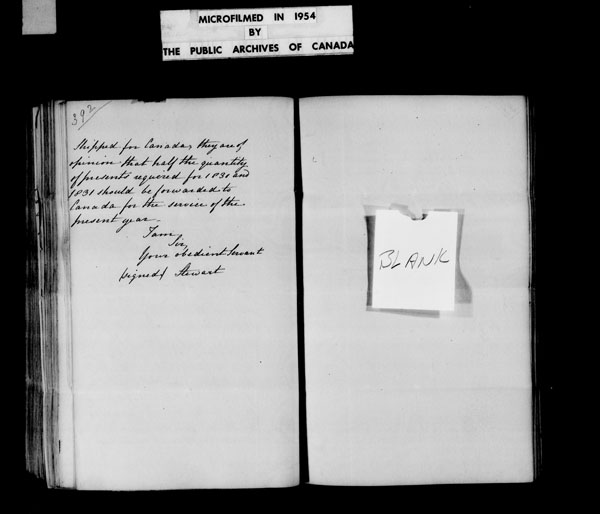 MICROFILMED IN 1954
BY
THE PUBLIC ARCHIVES OF CANADA
392
Shipped for Canada, they are of
opinion that half the quantity
of presents required for 1830 and
1831 should be forwarded to
Canada for the service of the
present year.
I am
Sir,
Your obedient Servant
(signed) Stewart
BLANK